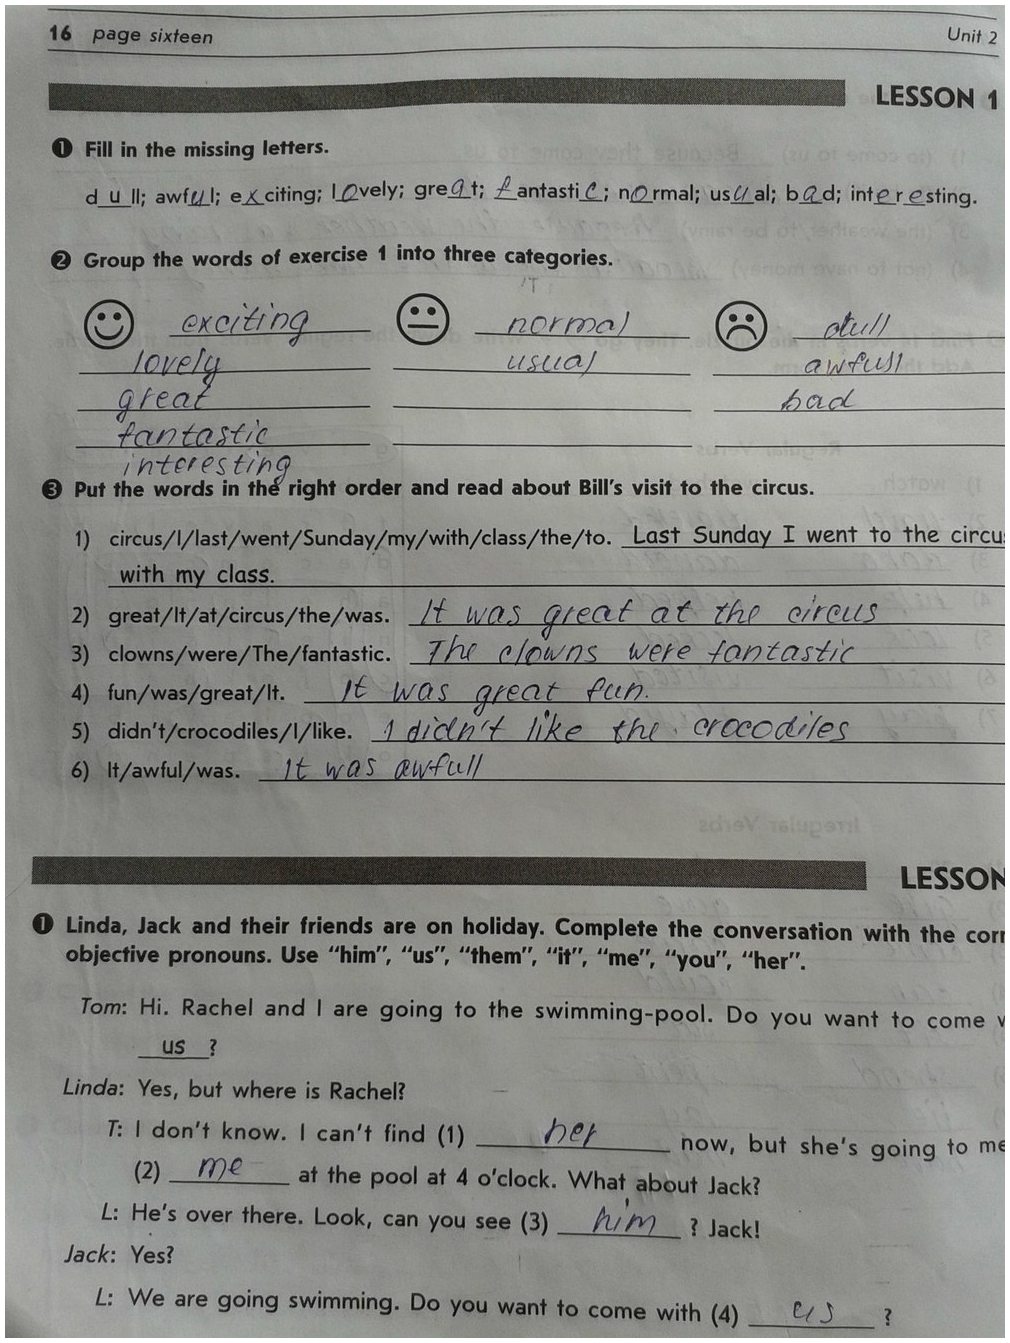 16 page sixteen Unit 2
LESSON 1
❶ Fill in the missing letters.
d u ll; awful; exciting; lovely; great; fantastic; normal; usual; bad; interesting.
❷ Group the words of exercise 1 into three categories.
IT
exciting normal dull
lovely usual awfull
great bad
fantastic
interesting
❸ Put the words in the right order and read about Bill's visit to the circus.
1) circus/I/last/went/Sunday/my/with/class/the/to. Last Sunday I went to the circu
with my class.
2) great/It/at/circus/the/was. It was great at the circus
3) clowns/were/The/fantastic. The clowns were fantastic
4) fun/was/great/It. It was great fun.
5) didn't/crocodiles/I/like. I didn't like the crocodiles
6) It/awful/was. It was awfull
LESSON
❶ Linda, Jack and their friends are on holiday. Complete the conversation with the corr
objective pronouns. Use “him”, “us”, “them”, “it”, “me”, “you”, “her”.
Tom: Hi. Rachel and I are going to the swimming-pool. Do you want to come
us ?
Linda: Yes, but where is Rachel?
T: I don't know. I can't find (1) her now, but she's going to me
(2) me at the pool at 4 o'clock. What about Jack?
L: He's over there. Look, can you see (3) him ? Jack!
Jack: Yes?
L: We are going swimming. Do you want to come with (4) us ?